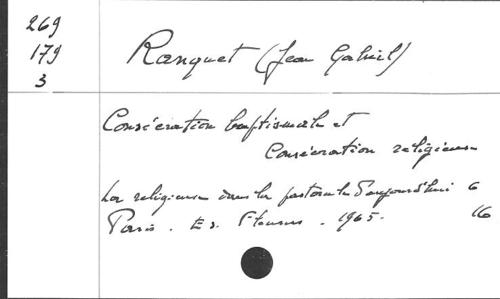 269
179
3
Ranquet (Jean Gabriel)
Consécration baptismale et
Consécration religieuse
La religieuse dans la pastorale d'aujourd'hui 6
Paris. Ed. Fleurus. 1965. 16